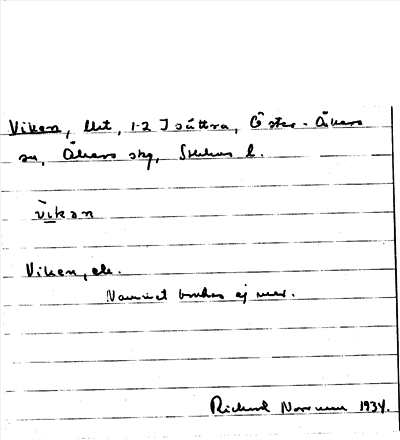 Viken, lht, 1-2 Isättra, Öster-Åkers
sn, Åkers skg, Sthlms l.
vìkən
Viken, ek.
Namnet brukas ej mer.
Richard 1934.